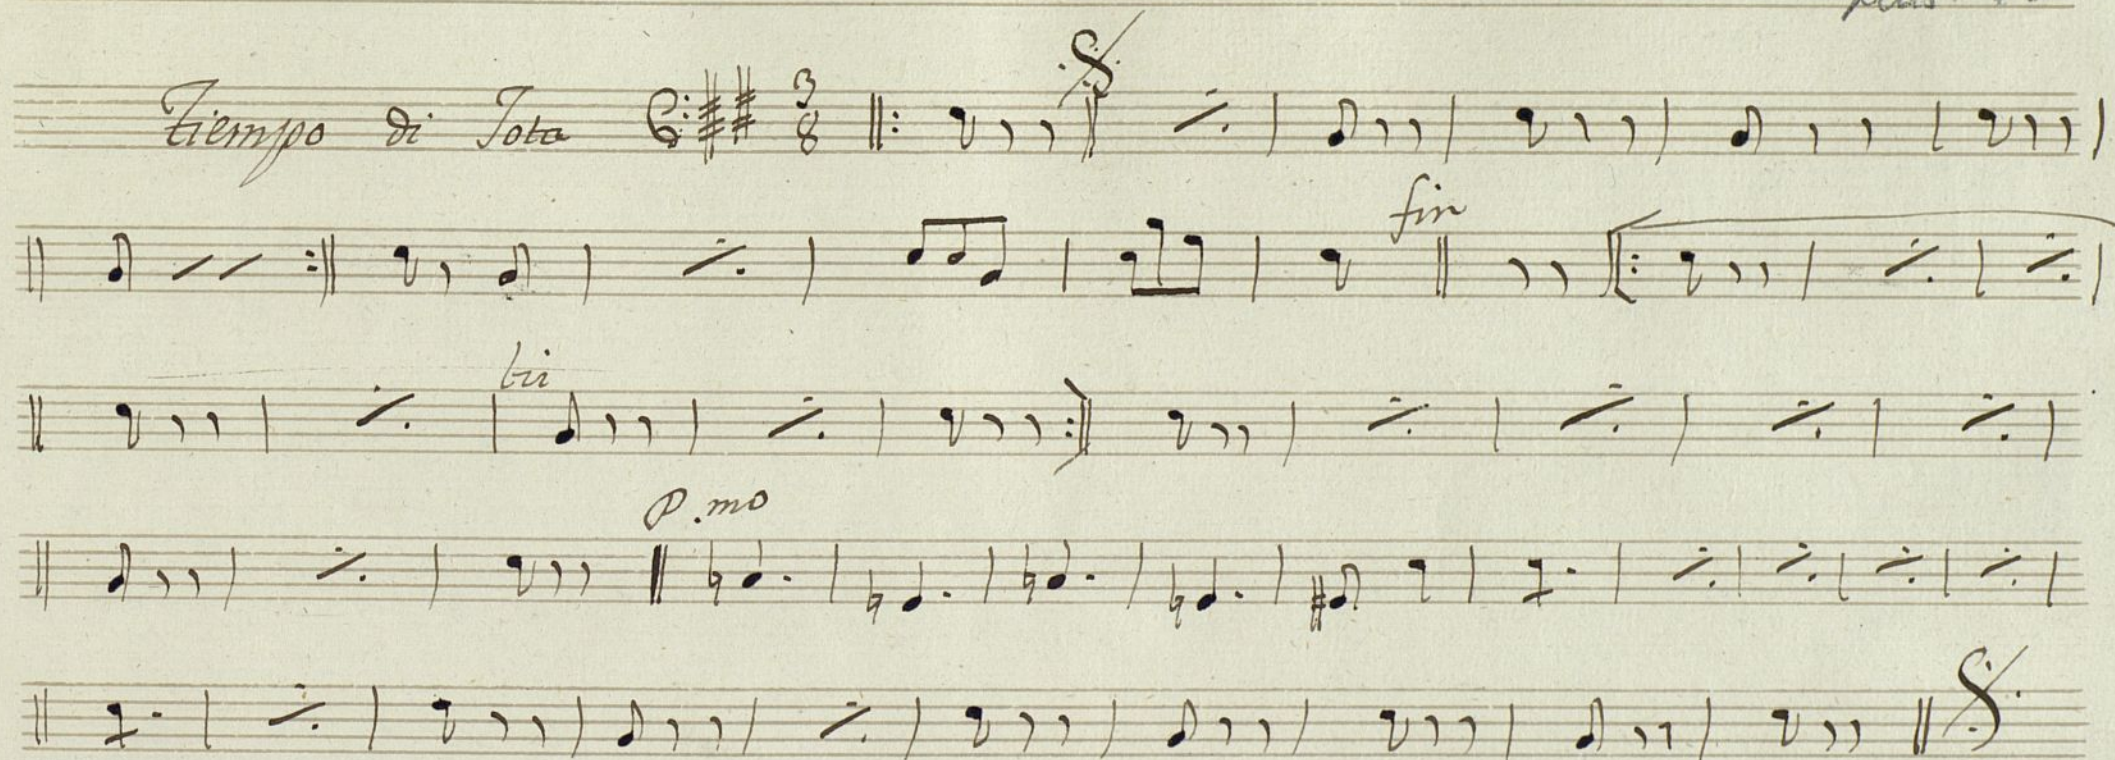 Tiempo di Jota 3 8
fin
bis
P.mo